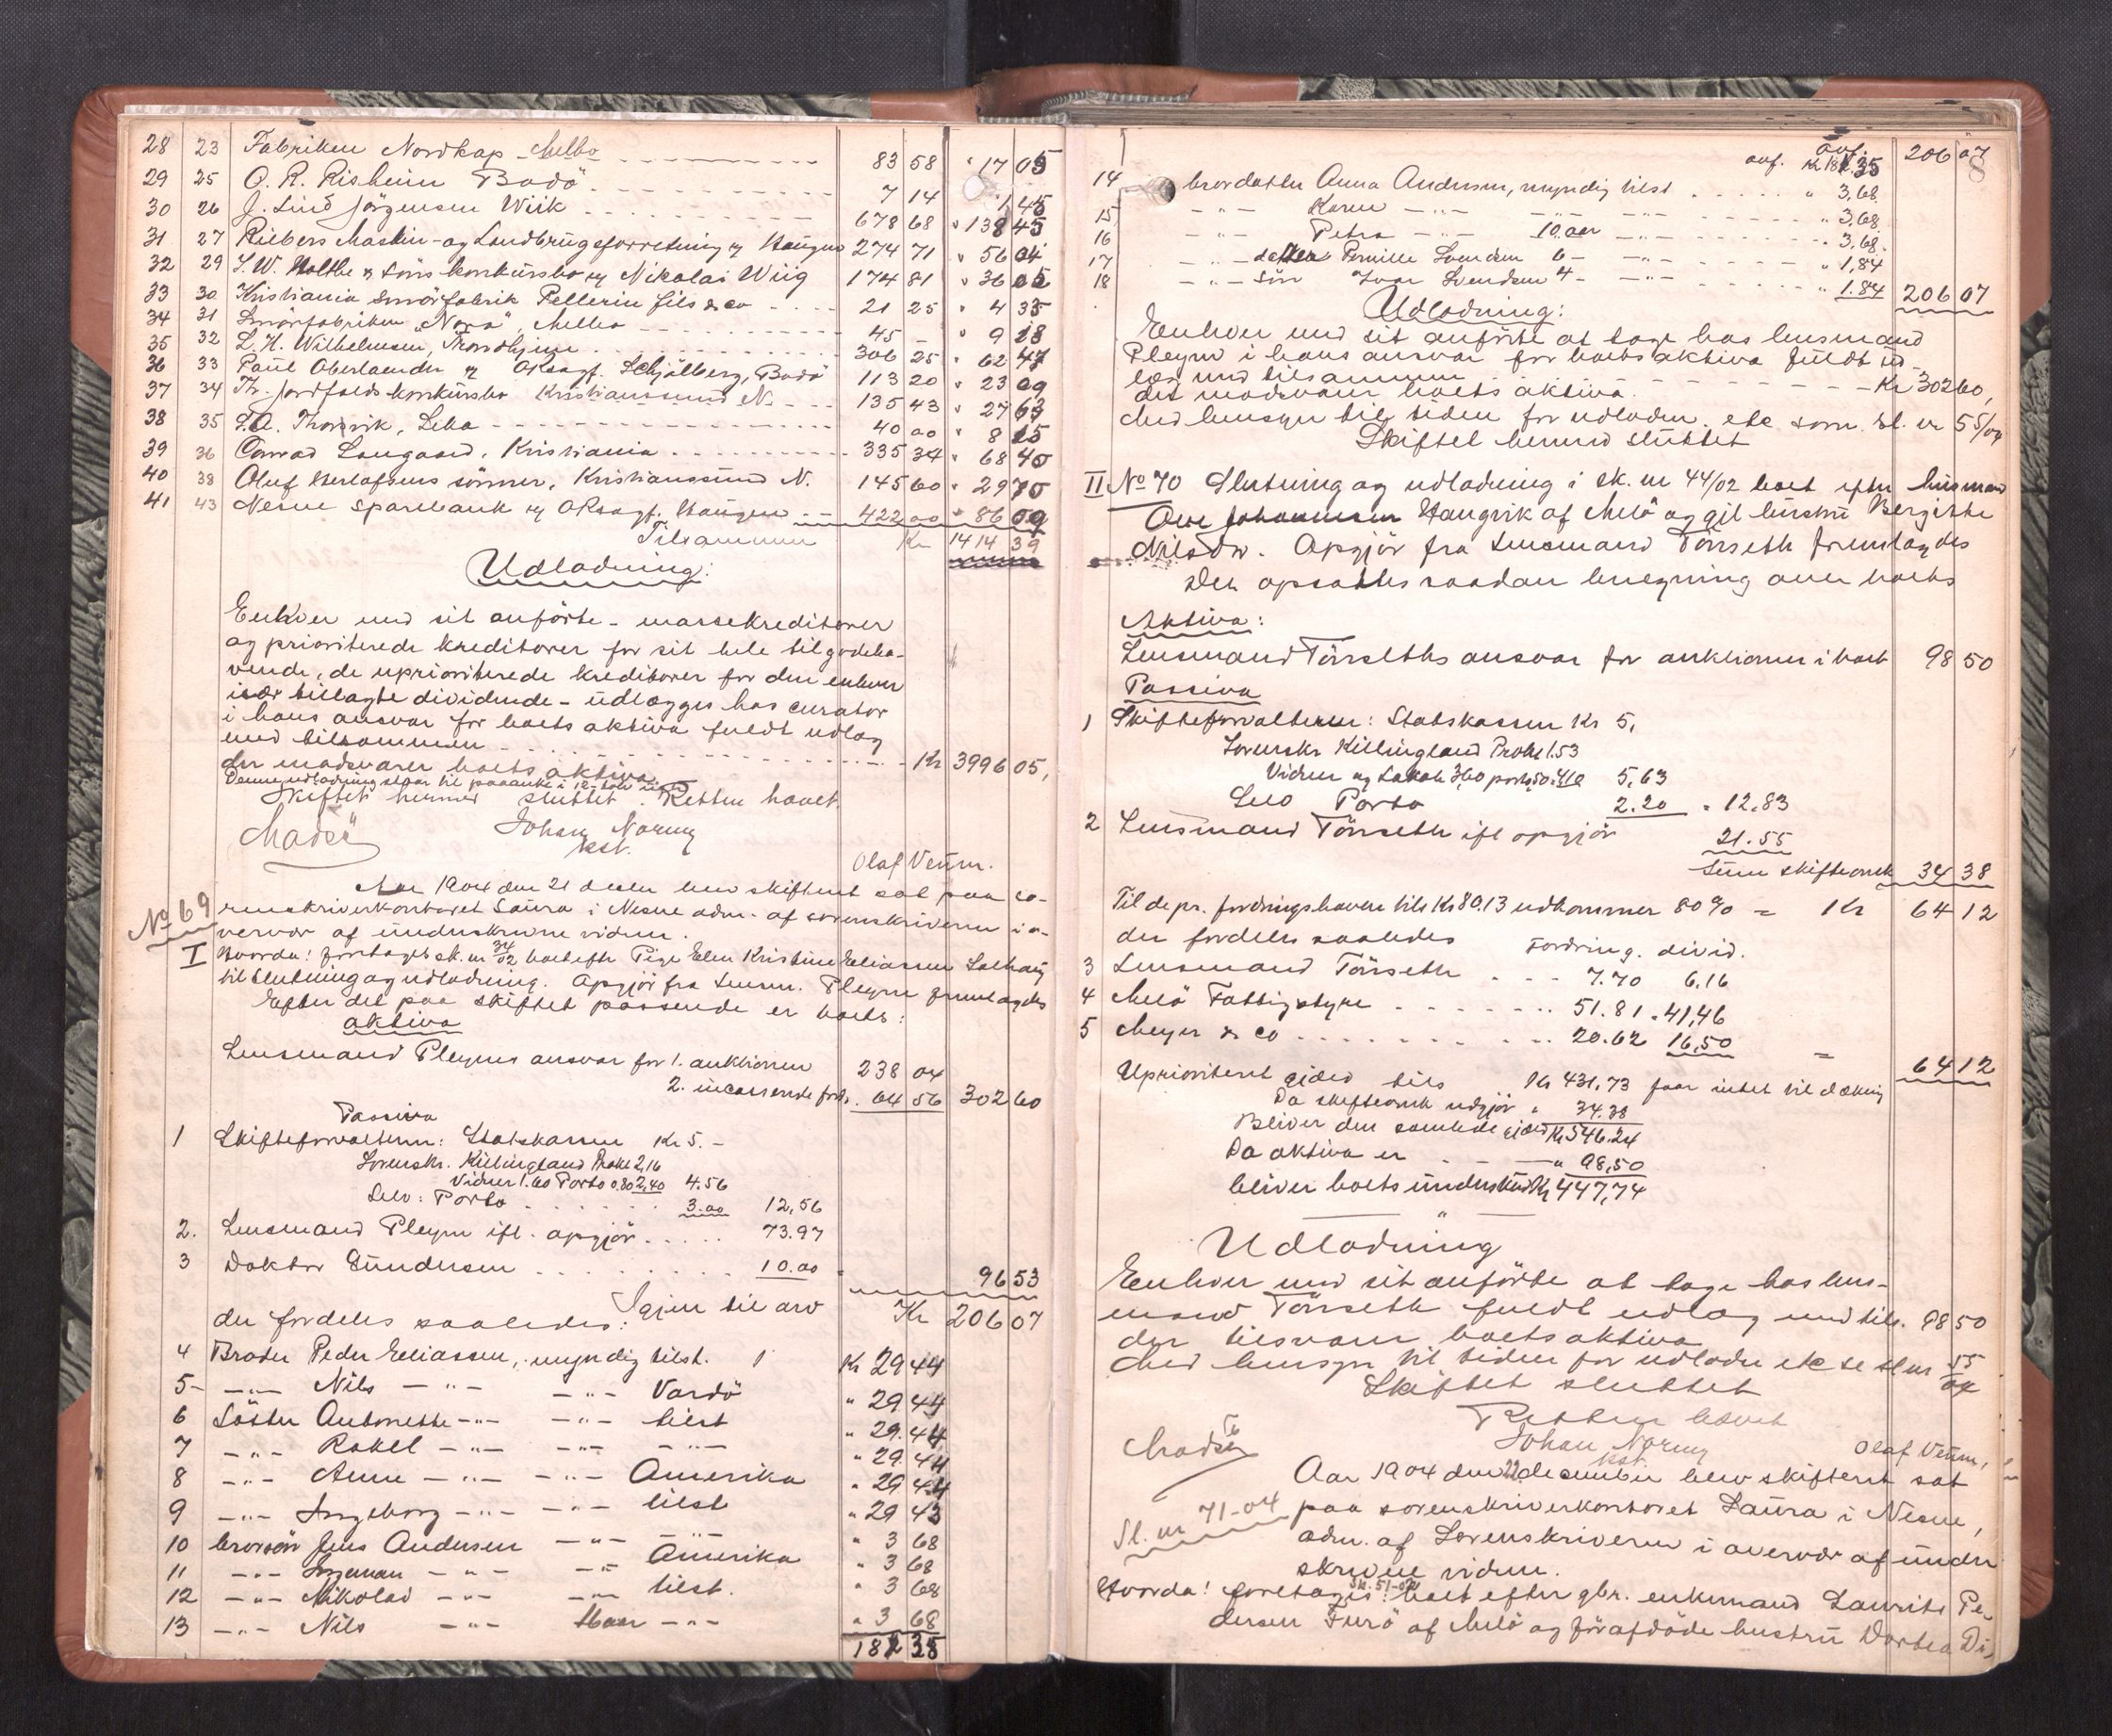 28 23 Fabriken Nordkap Melbo 83 58 " 17 05
29 25 O. R. Risheim Bodö 7 14 1 45
30 26 J. Lind Jörgensen Wiik 678 68 " 138 45
31 27 Riebers Maskin- og Landbrugsforretning v Haugen 274 71 " 56 04
32 29 S. W. Holthe & Söns konkursbo v Nikolai Wiig 174 81 " 36 05
33 30 Kristiania Smörfabrik Pellerin fils & co 21 25 " 4 35
34 31 Smörfabriken "Nora", Melbo 45 - " 9 18
35 32 L. H. Wilhelmsen, Trondhjem 306 25 " 62 47
36 33 Paul Oberlaender v ORsagf. Schjölberg, Bodö 113 20 " 23 09
37 34 Th. Jordfalds konkursbo Kristianssund N. 135 43 " 27 63
38 35 T.A. Thorsvik, Leka 40 00 " 8 15
39 36 Conrad Langaard, Kristiania 335 34 " 68 40
40 38 Oluf Herlofsens sönner, Kristianssund N. 145 60 " 29 70
41 43 Nesne Sparebank v ORsagf. Haugen 422 00 " 86 09
Tilsammen Kr 1414 39
Udlodning:
Enhver med sit anförte - massekreditorer
og prioriterede kreditorer for sit hele tilgodeha-
vende, de uprioriterede kreditorer for den enhver
især tillagte dividende - udlægges hos curator
i hans ansvar for boets aktiva fuldt udlag
med tilsammen
der modsvarer boets aktiva. Kr 3996 05,
Denne udlodning staar til paaanke i 12 
Skiftet hermed sluttet. Retten hævet.
Madsö Johan Normy
kst. Olaf Venm.
No 69 Aar 1904 den 21 decbr blev skifteret sat paa so-
renskriverkontoret Saura i Nesne adm. af sorenskriveren i o-
vervær af underskrevne vidner.
I Hvorda: foretages sk. nr 34/02 boet efter Pige Elen Kristine Eliassen Solhaug
til slutning og udlodning. Opgjör fra Lensm. Pleym fremlagdes
Efter det paa skiftet passerede er boets:
aktiva
Lensmand Pleyms ansvar for 1. auktionen 238 04
2. incasserede fordr. 64 56 302 60
Passiva
1 Skifteforvalteren: Statskassen Kr 5.-
Sorenskr. Killingland Protk 2,16
Vidner 1.60 Porto 0.80 2,40 4.56
Selv: Porto 3.00 12,56
2. Lensmand Pleym ifl. opgjör 73.97
3 Doktor Gundersen 10.00 96 53
Igjen til arv Kr 206 07
der fordeles saaledes:
4 Broder Peder Eliassen, myndig tilst. Kr 29 44
5 -"- Nils -"- -"- Vardö " 29 44
6 Söster Antonette -"- -"- tilst " 29.44
7 -"- Rakel -"- -"- -"- " 29.44
8 -"- Anne -"- -"- Amerika " 29 44
9 -"- Ingeborg -"- -"- tilst " 29 43
10 brorsön Jens Andersen -"- -"- " 3 68
11 -"- Ingeman -"- -"- Amerika " 3 68
12 -"- Nikolai -"- -"- tilst. " 3 68
13 -"- Nils -"- 16aar -"- " 3 68
182 35
8
ovf. Kr 182.35 ovf. 206 07
14 brordatter Anna Andersen, myndig tilst " 3,68
15 -"- Karen -"- -"- -"- " 3,68
16 -"- Petra -"- 10.aar -"- " 3,68
17 -"- datter Pernille Svendsen 6- -"- " 1,84
18 -"- sön Ivar Svendsen 4- -"- " 1.84 206 07
Udlodning:
Enhver med sit anförte at tage hos lensmand
Pleym i hans ansvar for boets aktiva fuldt ud-
læg med tilsammen
det modsvarer boets aktiva. Kr 302 60,
Med hensyn til tiden for udlodn. etc som sl. nr 55/04
Skiftet hermed sluttet
II No 70 Slutning og udlodning i sk. nr 44/02 boet efter husmand
Ove Johannesen Haugvik af Melö og gjl hustru Bergitte
Nilsdtr. Opgjör fra Lensmand Tönseth fremlagdes
Der opsattes saadan beregning over boets
Aktiva:
Lensmand Tönseths ansvar for auktionen i boet 98 50
Passiva
1 Skifteforvalteren: Statskassen Kr 5,
Sorenskr Killingland Protk 1.53
Vidner og Lokale 3,60 porto 50. 4,10 5,63
Selv Porto 2.20 " 12.83
2 Lensmand Tönseth ifl opgjör 21.55
Sum skifteomk 34 38
Til de pr. fordringshavere tils Kr 80.13 udkommer 80% = Kr 64 12
der fordeles saaledes Fordring. divid.
3 Lensmand Tönseth 7.70 6.16
4 Melö Fattigstyre 51.81 " 41,46
5 Meyer & co 20.62 16,50 = 64 12
Uprioriteret gjæld tils Kr 431,73 faar intet til dækning
Da skifteomk udgjör " 34.38
Bliver den samlede gjæld Kr 546.24
Da aktiva er " 98,50
bliver boets underskud Kr 447,74
Udlodning
Enhver med sit anförte at tage hos lens-
mand Tönseth fuldt udlag med tils. 98 50
der tilsvarer boets aktiva
Med hensyn til tiden for udlodn etc se sl nr 55/04
Skiftet sluttet
Retten hævet
Madsö Johan Normy
kst. Olaf Venm,
Aar 1904 den 22 december blev skifteret sat
Sl. nr 71-04 paa sorenskriverkontoret Saura i Nesne,
adm. af Sorenskriveren i overvær af under
skrevne vidner.
Hvorda: foretages sk. 51-02 boet efter gbr. enkemand Laurits Pe-
dersen Turö af Melö og förafdöde hustru Dortea Di-